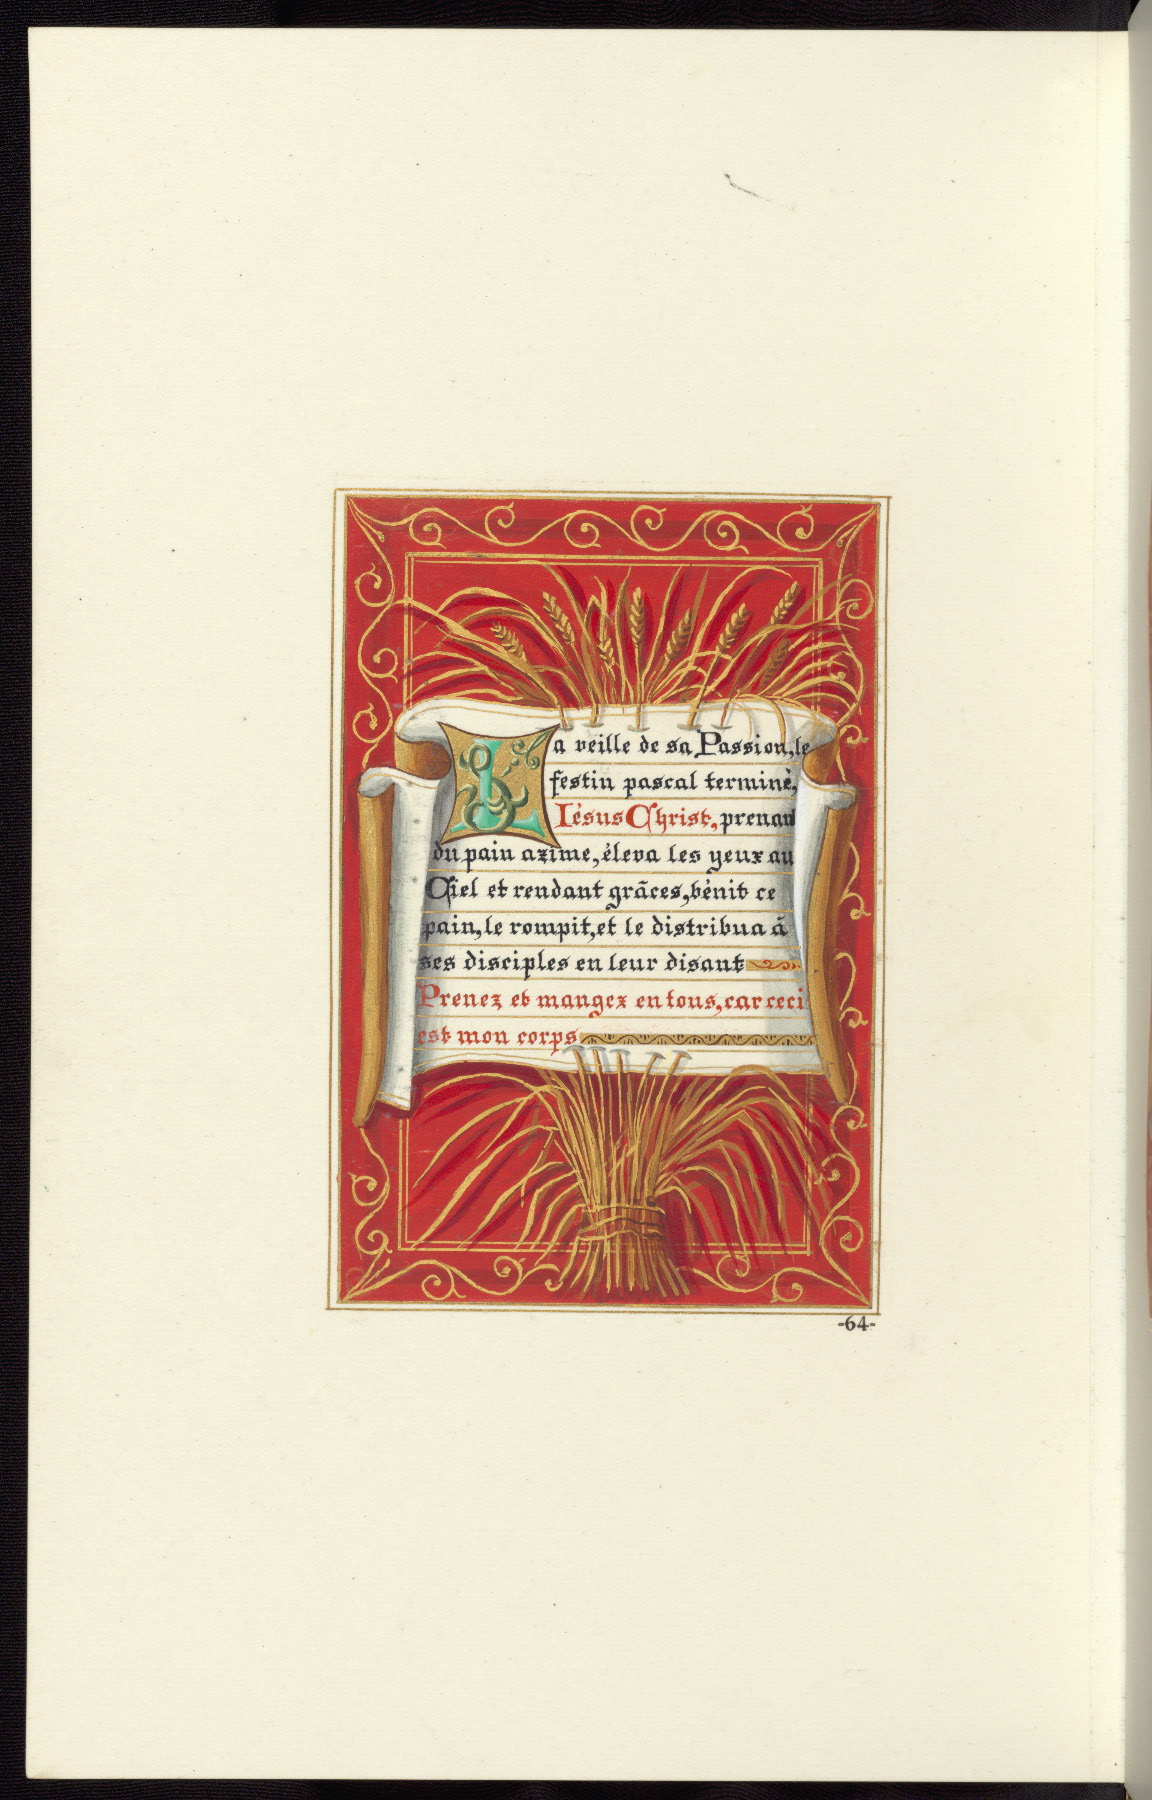 La veille de sa Passion, le
festin pascal terminè,
Iésus Christ, prenant
du pain azime, éleva les yeux au
Ciel et rendant grãces, bénit ce
pain, le rompit, et le distribua ã
ses disciples en leur disant
Prenez et mangez en tous, car ceci
est mon corps
-64-